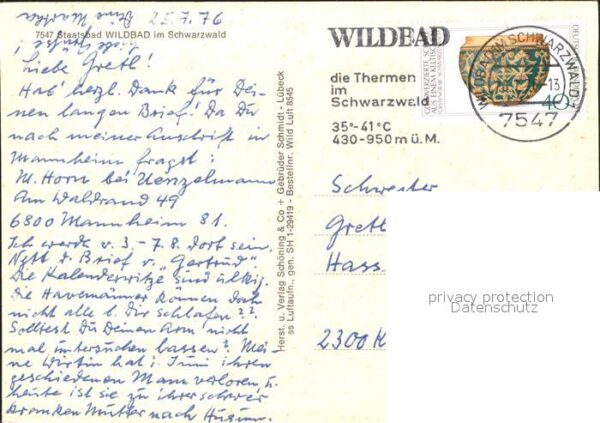 25.7.76
7547 Staatsbad WILDBAD im Schwarzwald
Liebe Gretl!
Hab' herzl. Dank für Dei-
nen langen Brief! Da Du
nach meiner Anschrift in
Mannheim fragst:
M. Horn bei Uenzelmann
Am Waldrand 49
6800 Mannheim 81.
Ich werde v. 3.-7.8. dort sein.
Nett d. Brief v. „Gertrud".
Die Kalenderwitze sind ulkig.
Die Havemänner können doch
nicht alle b. Dir schlafen??
Solltest Du Deinen Arm nicht
mal untersuchen lassen? Mei-
ne Wirtin hat i. Juni ihren
geschiedenen Mann verloren, u.
heute ist sie zu ihrer schwer
kranken Mutter nach Husum.
Herst. u. Verlag Schöning & Co + Gebrüder Schmidt - Lübeck
ss Luftaufn., gen. SH 1-29419 - Bestellnr. Wild Luft 8545
WILDBAD
die Thermen
im
Schwarzwald
35°-41°C
430-950m ü.M.
WILDBAD IM SCHWARZWALD
13
7547
40
Schwester
Gretl
Hass
2300 K
privacy protection
Datenschutz